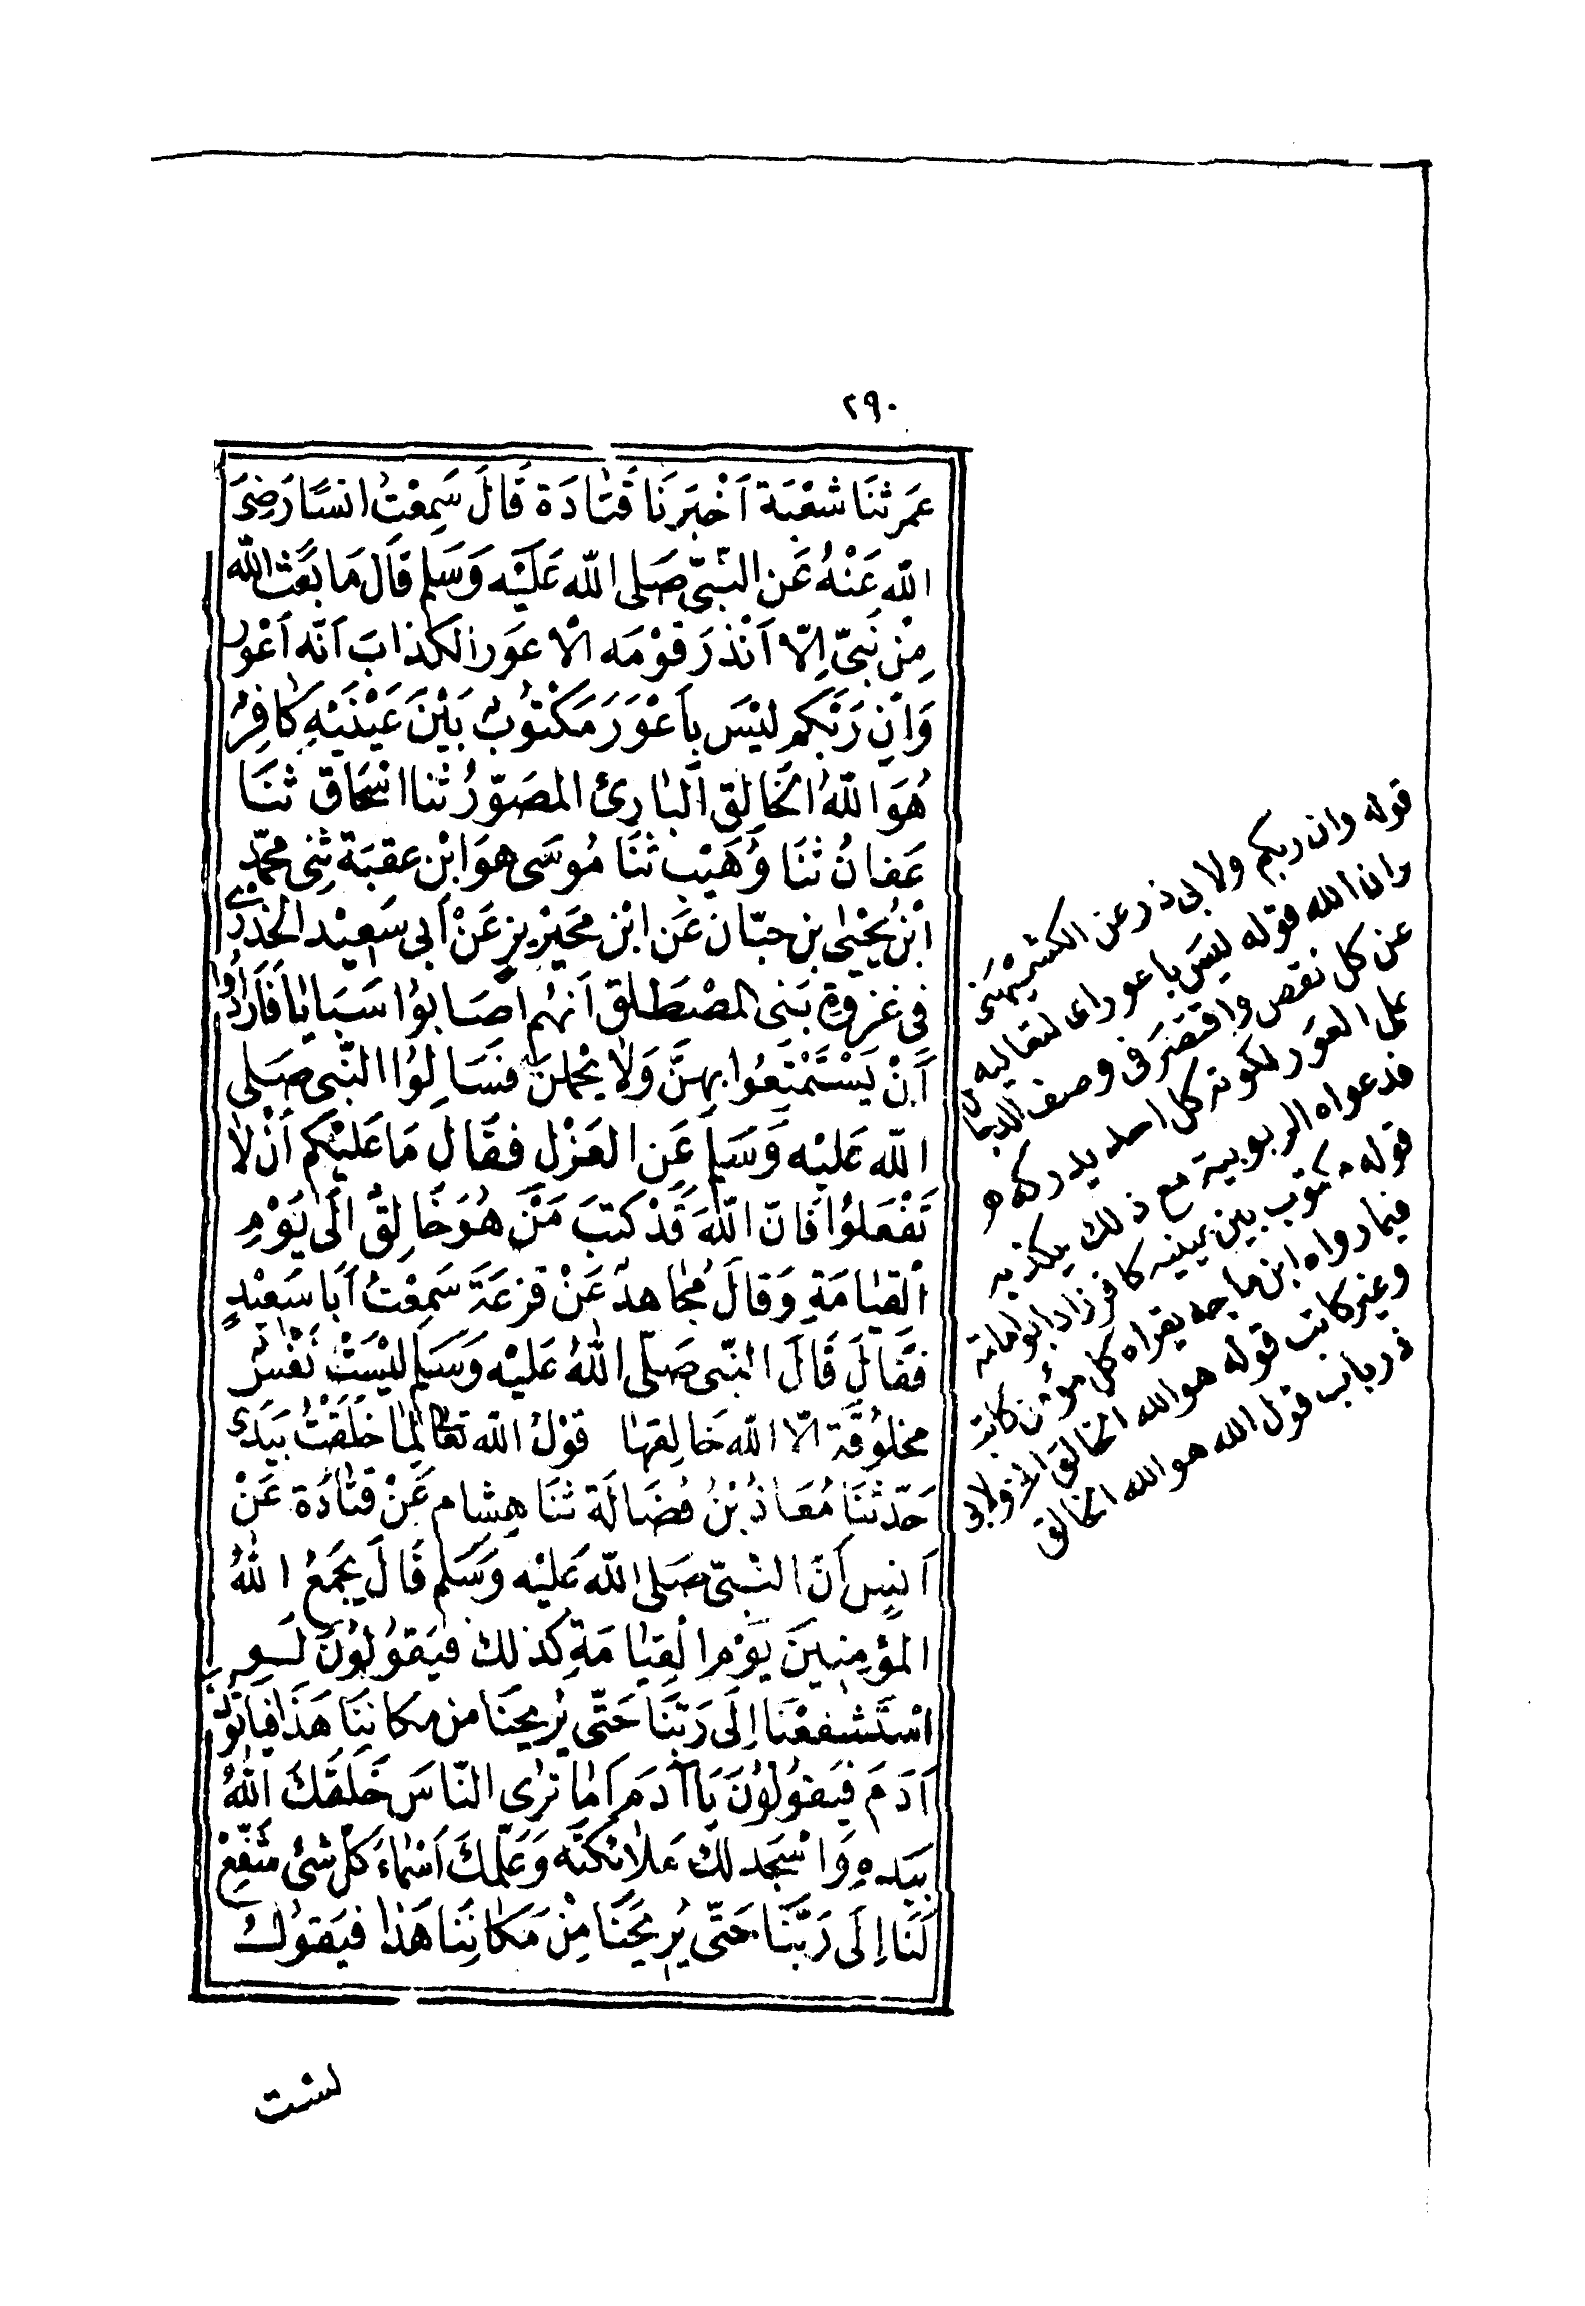 ٢٩٠
عمر ثنا شعبة أخبرنا قتادة قال سمعت انسا رضى
الله عنه عن النبى صلى الله عليه وسلم قال ما بعث الله
من نبى إلا أنذر قومه الاعور الكذاب انه أعور
وان ربكم ليس بأعور مكتوب بين عينيه كافر
هو الله الخالق البارئ المصور ثنا اسحاق ثنا
عفان ثنا وهيب ثنا موسى هو ابن عقبة ثنى محمد
ابن يحيى بن حبان عن ابن محيريز عن أبى سعيد الخدرى
فى غزوة بنى المصطلق انهم اصابوا سبايا فأرادوا
أن يستمتعوا بهن ولا يحملن فسالوا النبى صلى
الله عليه وسلم عن العزل فقال ما عليكم أن لا
تفعلوا فان الله قد كتب من هو خالق الى يوم
القيامة وقال مجاهد عن قزعة سمعت أبا سعيد
فقال قال النبى صلى الله عليه وسلم ليست نفس
مخلوقة الا الله خالقها قول الله تعالى لما خلقت بيدى
حدثنا معاذ بن فضالة ثنا هشام عن قتادة عن
أنس أن النبى صلى الله عليه وسلم قال يجمع الله
المؤمنين يوم القيامة كذلك فيقولون لو
استشفعنا إلى ربنا حتى يريحنا من مكاننا هذا فياتون
آدم فيقولون يا آدم أما ترى الناس خلقك الله
بيده واسجد لك ملائكته وعلمك أسماء كل شئ شفع
لنا إلى ربنا حتى يريحنا من مكاننا هذا فيقول
لست
قوله وان ربكم ولابى ذر عن الكشميهنى
وان الله قوله ليس باعور اى لتعاليه
عن كل نقص واقتصر فى وصف الدجال
على العور لكونه كل احد يدركه و
فدعواه الربوبية مع ذلك يكذبه
قوله مكتوب بين عينيه كافر زاد ابو امامة
فيما رواه ابن ماجه يقراه كل مؤمن كاتب
وغير كاتب قوله هو الله الخالق الخ ولابى
ذر باب قول الله هو الله الخالق